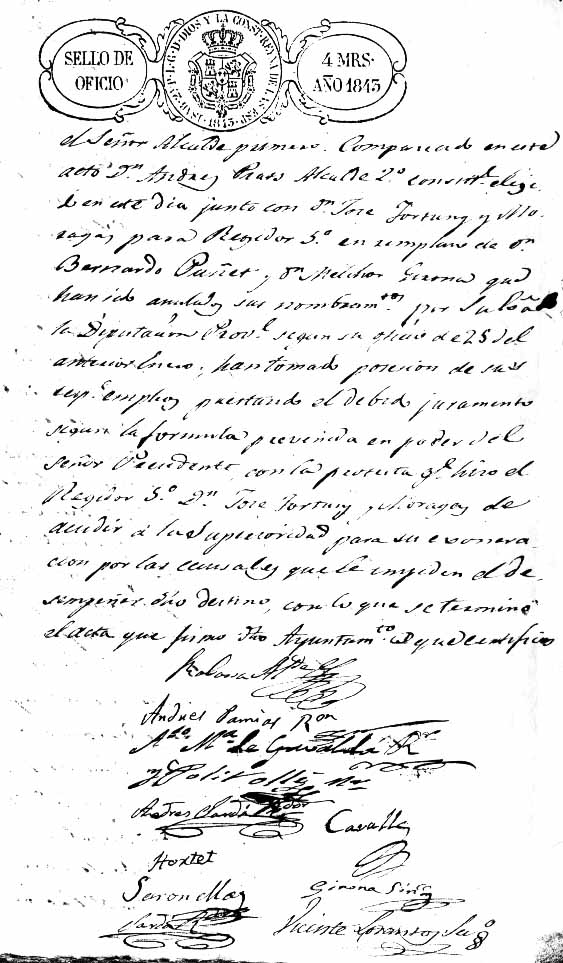 SELLO DE
OFICIO
4 MRS.
AÑO 1843
el Señor Alcalde primero. Comparecido en este
acto Dn Andres Prats Alcalde 2.o constl. elegi-
do en este dia junto con Dn Jose Fortuny y Mo-
ragas para Regidor 5.o en remplazo de Dn
Bernardo Puñet, y Dn Melchor Girona que
han sido anulados sus nombramtos por
la Diputacion Provl. segun su oficio de 25 del
anterior Enero, han tomado posesion de sus
resps. empleos prestando el debido juramento
segun la formula prevenida en poder del
Señor Presidente, con la protesta qe. hizo el
Regidor 5.o Dn Jose Fortuny y Moragas de
acudir á la Superioridad para su exonera-
cion por las causales que le impiden el de-
sempeñar dho destino, con lo que se terminó
el acta que firmó dho Ayuntamto. de que certifico
Andres Pamias Ror
Cavallé
Hortet
Seronellas
Girona Sindo
Sardá Ror
Vicente Srio